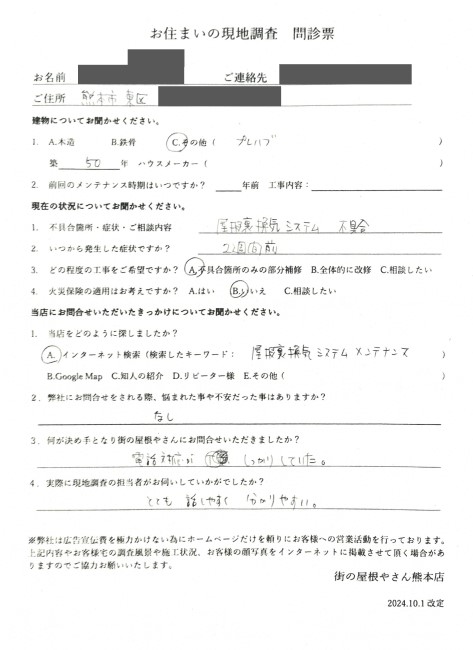 お住まいの現地調査 問診票
お名前 ご連絡先
ご住所 熊本市東区
建物についてお聞かせください。
1. A.木造 B.鉄骨 C.その他（ プレハブ ）
築 50 年 ハウスメーカー（ ）
2. 前回のメンテナンス時期はいつですか？ 年前 工事内容：
現在の状況についてお聞かせください。
1. 不具合箇所・症状・ご相談内容 屋根裏換気システム 不具合
2. いつから発生した症状ですか？ 2週間前
3. どの程度の工事をご希望ですか？ A.不具合箇所のみの部分補修 B.全体的に改修 C.相談したい
4. 火災保険の適用はお考えですか？ A.はい B.いいえ C.相談したい
当店にお問合せいただいたきっかけについてお聞かせください。
1. 当店をどのように探しましたか？
A. インターネット検索（検索したキーワード： 屋根裏換気システムメンテナンス
B.Google Map C.知人の紹介 D.リピーター様 E.その他（ ）
2. 弊社にお問合せをされる際、悩まれた事や不安だった事はありますか？
なし
3. 何が決め手となり街の屋根やさんにお問合せいただきましたか？
電話対応が しっかりしていた。
4. 実際に現地調査の担当者がお伺いしていかがでしたか？
とても 話しやすく 分かりやすい。
※弊社は広告宣伝費を極力かけない為にホームページだけを頼りにお客様への営業活動を行っております。
上記内容やお客様宅の調査風景や施工状況、お客様の顔写真をインターネットに掲載させて頂く場合があ
りますのでご協力お願いいたします。
街の屋根やさん熊本店
2024.10.1 改定